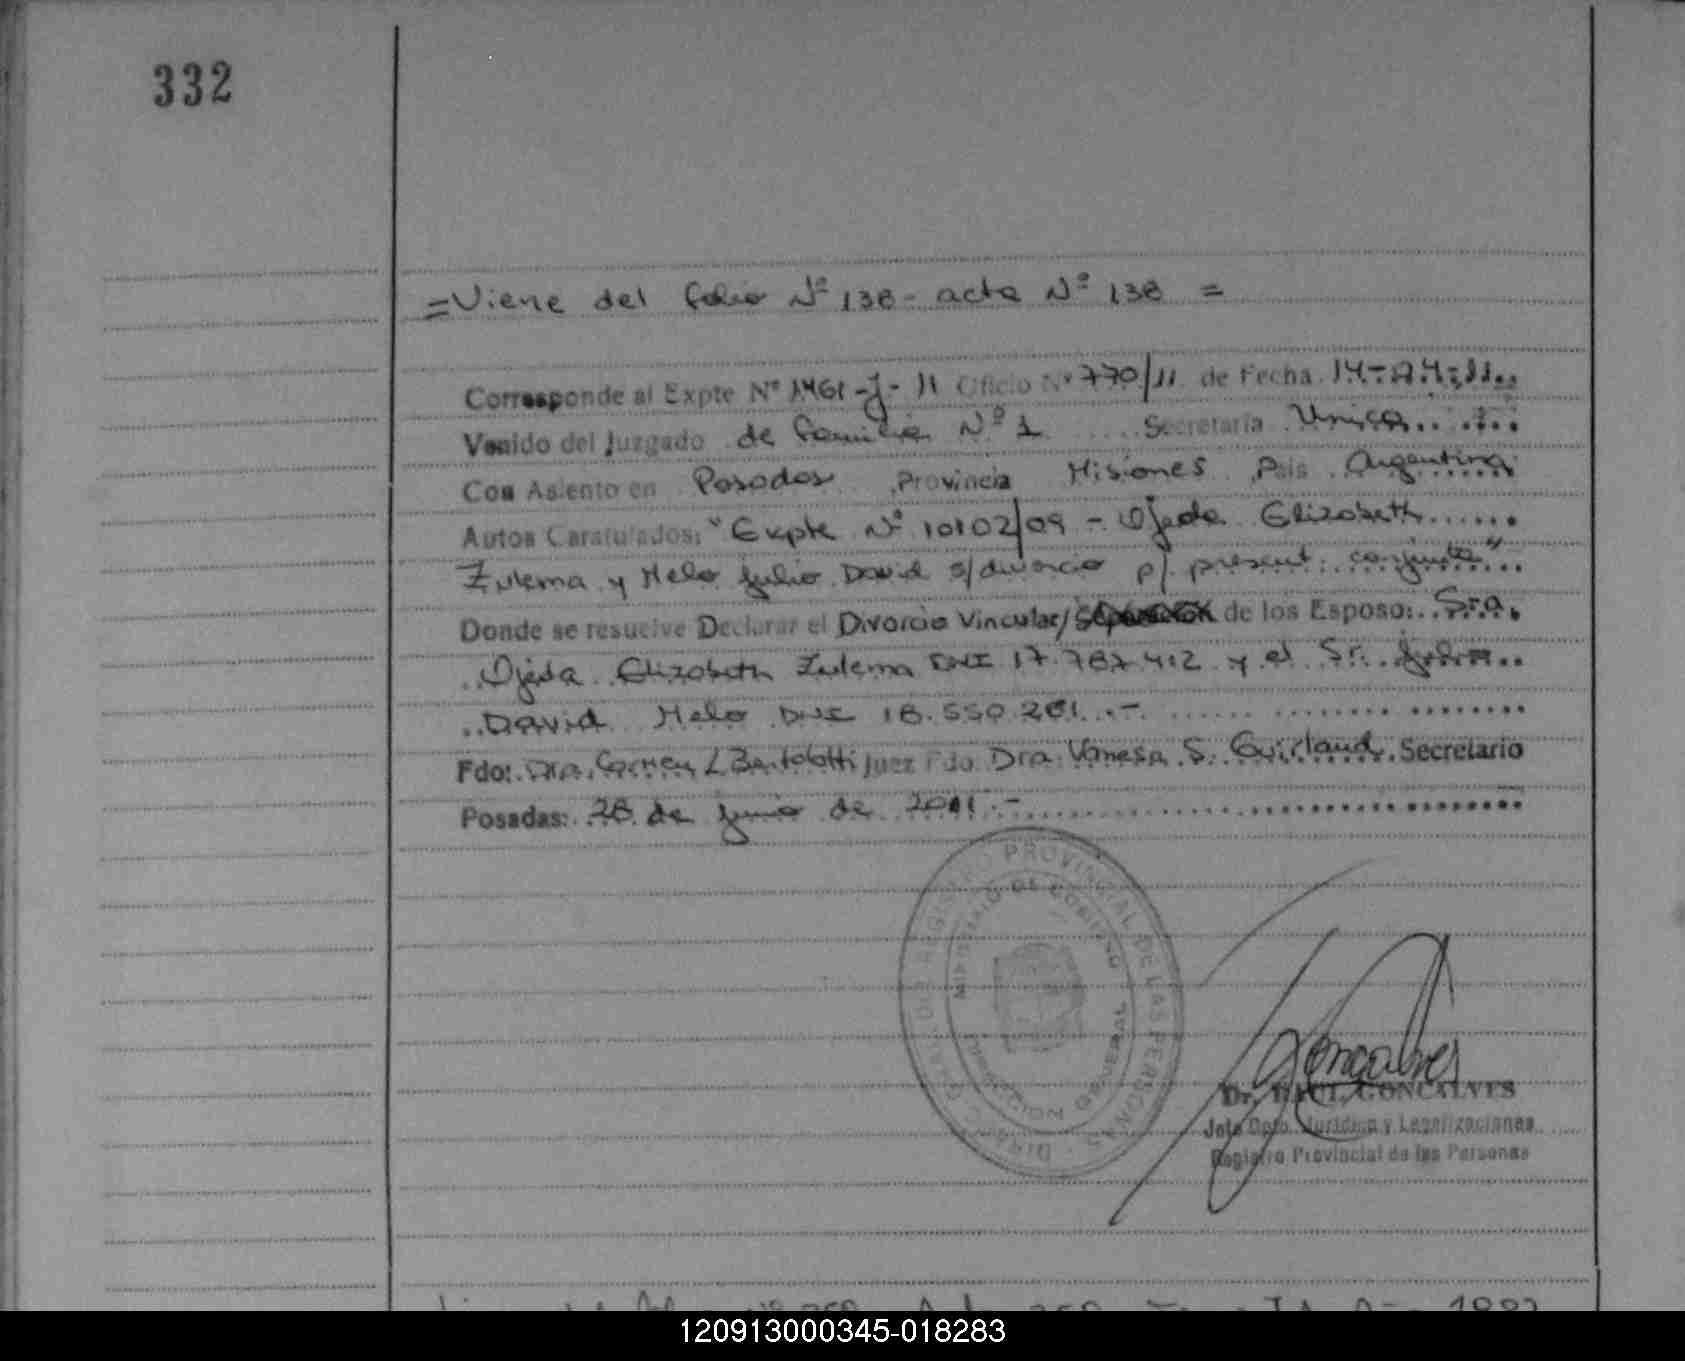 332
= Viene del folio Nº 138 - acta Nº 138 =
Corresponde al Expte Nº 1461-J-11 Oficio Nº 770/11 de Fecha 14-04-11..
Venido del Juzgado de Familia Nº 1 .... Secretaría Unica.....
Con Asiento en Posadas Provincia Misiones País Argentina
Autos Caratulados: "Expte Nº 10102/09 - Ojeda Elizabeth......
Zulema y Melo Julio David s/divorcio p/ present. conjunta"...
Donde se resuelve Declarar el Divorcio Vincular/ de los Esposo: Sra.
Ojeda Elizabeth Zulema DNI 17.787.412 y el Sr. Julio..
David Melo DNI 18.550.281.-
Fdo: Dra. Carmen L Bartolotti Juez Fdo Dra Vanesa S. Guirland. Secretario
Posadas: 28 de junio de 2011.-
DIREC. GRAL. DEL REGISTRO PROVINCIAL DE LAS PERSONAS
MINISTERIO DE GOBIERNO
Goncalves
Dr. RAUL GONCALVES
Jefe Dpto. Jurídico y Legalizaciones
Registro Provincial de las Personas
120913000345-018283